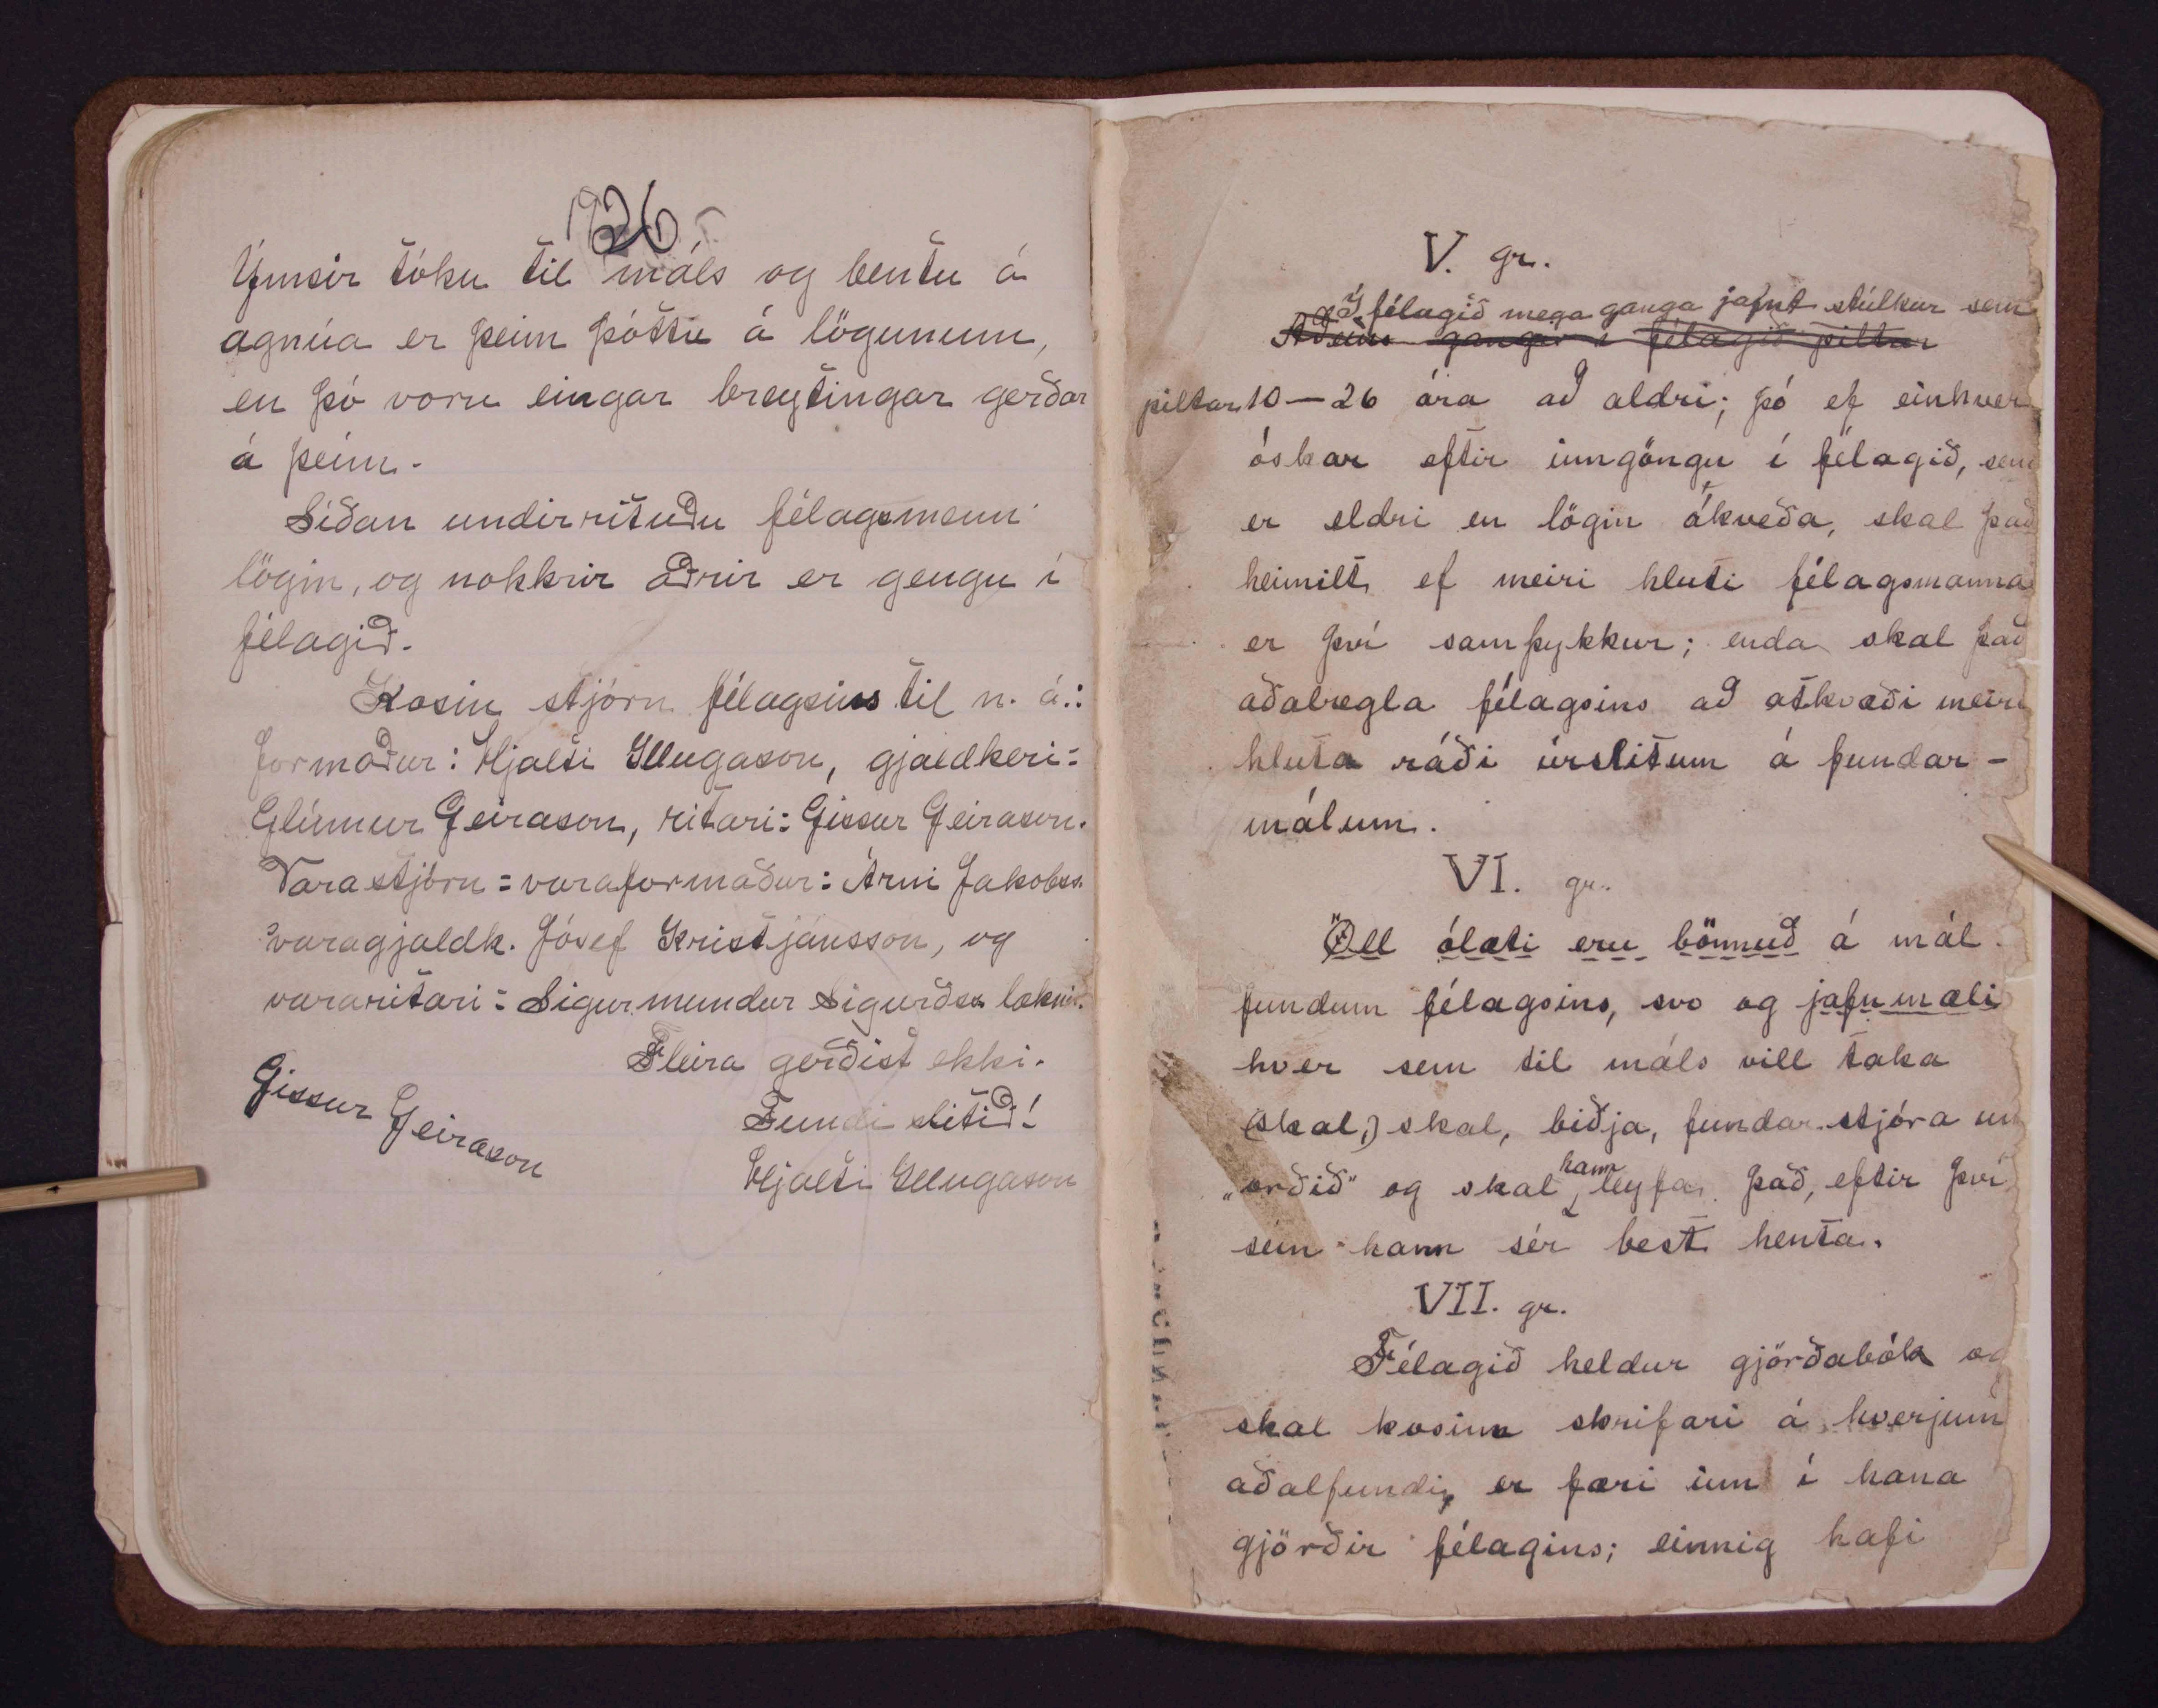 1926
Ýmsir tóku til máls og bentu á
agnúa er þeim þóttu á lögunum,
en þó voru eingar breytingar gerðar
á þeim.
Síðan undirrituðu félagsmenn
lögin, og nokkrir aðrir er gengu í
félagið.
Kosin stjórn félagsins til n. á.:
formaður: Hjalti Illugason, gjaldkeri:
Glúmur Geirason, ritari: Gissur Geirason.
Varastjórn: varaformaður: Árni Jakobss.
varagjaldk. Jósef Kristjánsson, og
vararitari: Sigurmundur Sigurðss læknir.
Fleira gerðist ekki.
Fundi slitið!
Gissur Geirason
Hjalti Illugason
V. gr.
Í félagið mega ganga jafnt stúlkur sem
Aðeins gangi í félagið piltar
piltar 10-26 ára að aldri; þó ef einhver
óskar eftir inngöngu í félagið, sem
er eldri en lögin ákveða, skal það
heimilt ef meiri hluti félagsmanna
er því samþykkur; enda skal það
aðalregla félagsins að atkvæði meiri
hluta ráði úrslitum á fundar-
málum.
VI. gr.
Öll ólæti eru bönnuð á mál-
fundum félagsins, svo og jafnmæli
hver sem til máls vill taka
(skal,) skal, biðja, fundarstjóra um
„orðið" og skal hann leyfa það, eftir því
sem hann sér best henta.
VII. gr.
Félagið heldur gjörðabók og
skal kosinn skrifari á hverjum
aðalfundi, er færi inn í hana
gjörðir félagins; einnig hafi